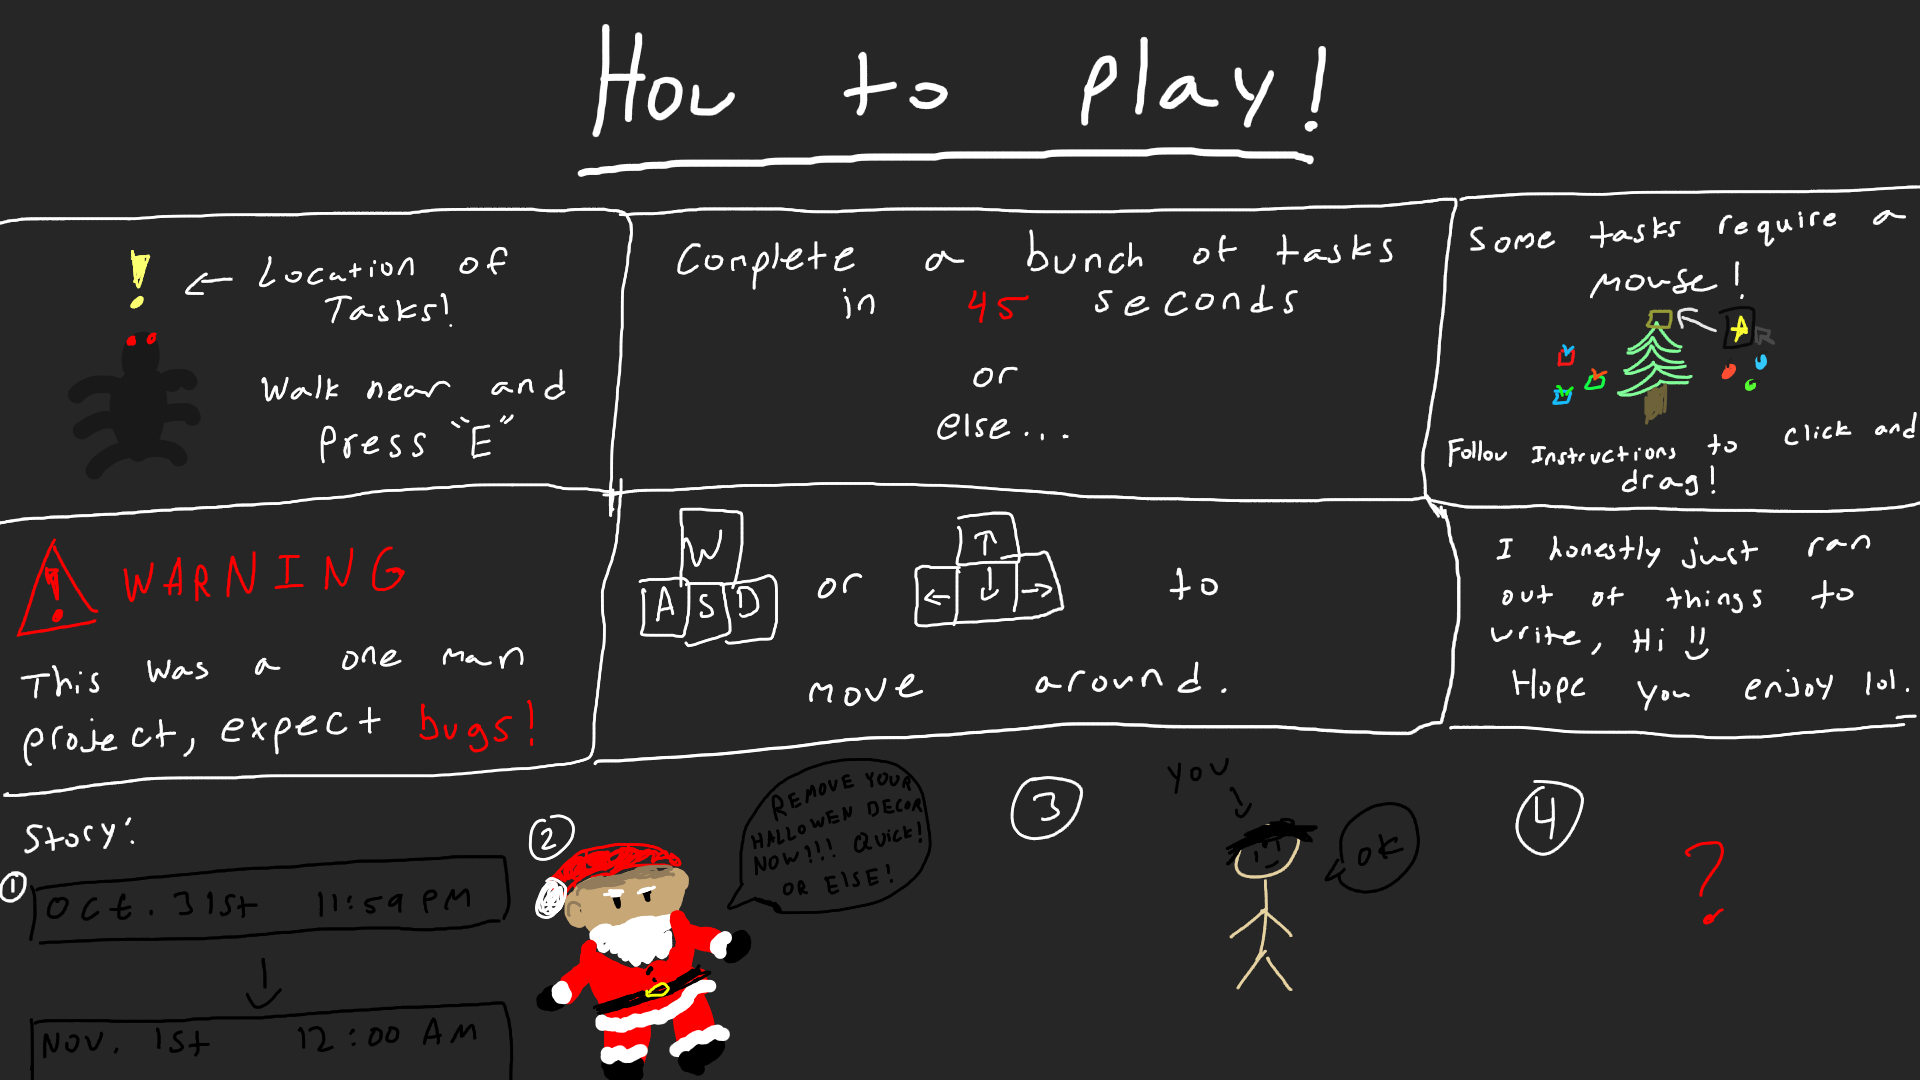 How to play!
! ← Location of
Tasks!
Walk near and
Press "E"
Complete a bunch of tasks
in 45 seconds
or
else...
Some tasks require a
mouse!
Follow Instructions to click and
drag!
! WARNING
This was a one man
project, expect bugs!
W
A S D or ↑ ← ↓ → to
move around.
I honestly just ran
out of things to
write, Hi !!
Hope you enjoy lol.
Story:
1
Oct. 31st 11:59 PM
Nov. 1st 12:00 AM
2
REMOVE YOUR
HALLOWEN DECOR
NOW!!! QUICK!
OR ElSE!
3
you
OK
4
?